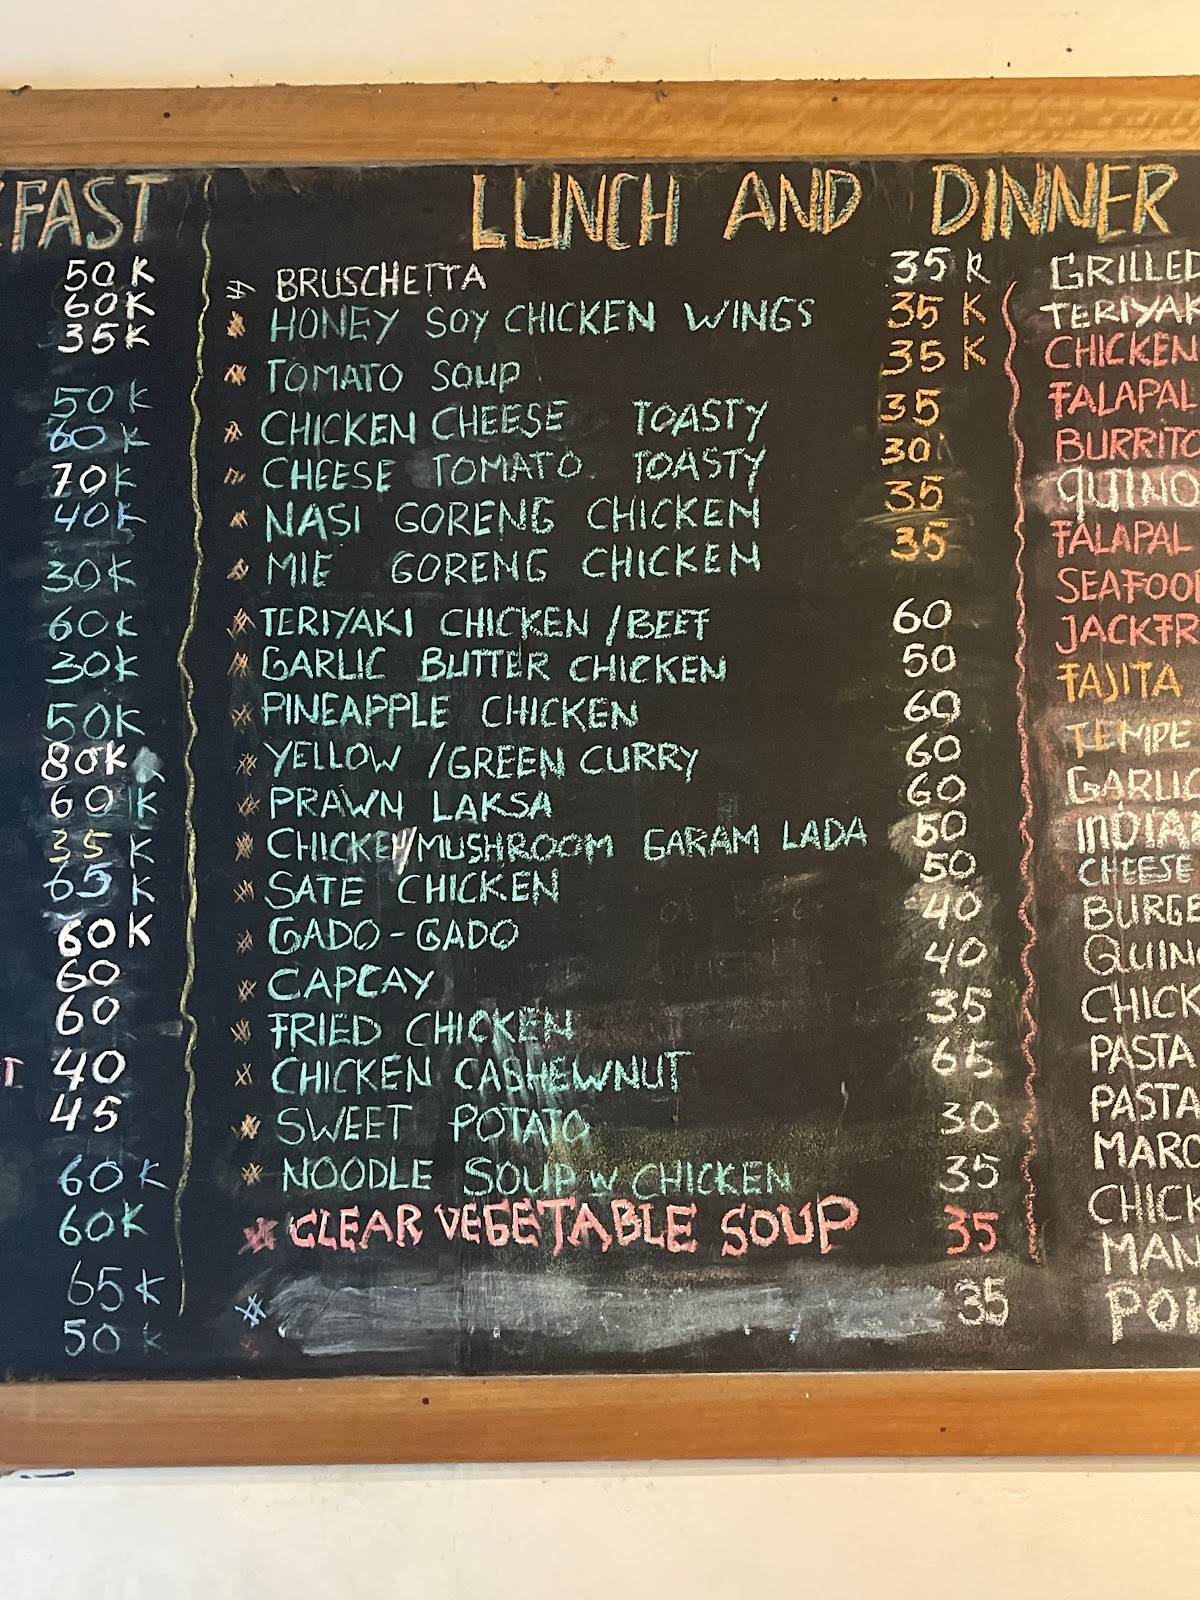 FAST
50K
60K
35K
50K
60K
70K
40K
30K
60K
30K
50K
80K
60K
35K
65K
60K
60
60
40
45
60K
60K
65K
50K
LUNCH AND DINNER
BRUSCHETTA 35K
HONEY SOY CHICKEN WINGS 35K
TOMATO SOUP 35K
CHICKEN CHEESE TOASTY 35
CHEESE TOMATO TOASTY 30
NASI GORENG CHICKEN 35
MIE GORENG CHICKEN 35
TERIYAKI CHICKEN/BEEF 60
GARLIC BUTTER CHICKEN 50
PINEAPPLE CHICKEN 60
YELLOW /GREEN CURRY 60
PRAWN LAKSA 60
CHICKEN/MUSHROOM GARAM LADA 50
SATE CHICKEN 50
GADO-GADO 40
CAPCAY 40
FRIED CHICKEN 35
CHICKEN CASHEWNUT 65
SWEET POTATO 30
NOODLE SOUP W CHICKEN 35
CLEAR VEGETABLE SOUP 35
35
GRILLED
TERIYAK
CHICKEN
FALAPAL
BURRITO
QUINO
FALAPAL
SEAFOO
JACKFR
FAJITA
TEMPE
GARLIC
INDIA
CHEESE
BURGE
QUIN
CHICK
PASTA
PASTA
MARO
CHICK
MAN